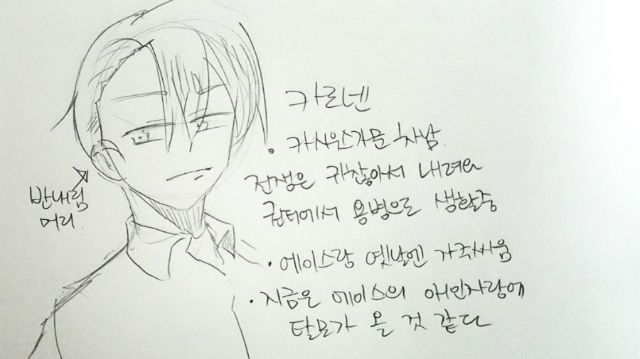 카르넨
• 카시안가문 차남.
전쟁은 귀찮아서 내려와
쿰터에서 용병으로 생활중
• 에이스랑 옛날엔 자주싸움
• 지금은 에이스의 애인자랑에
탈모가 올 것 같다
반내림
머리